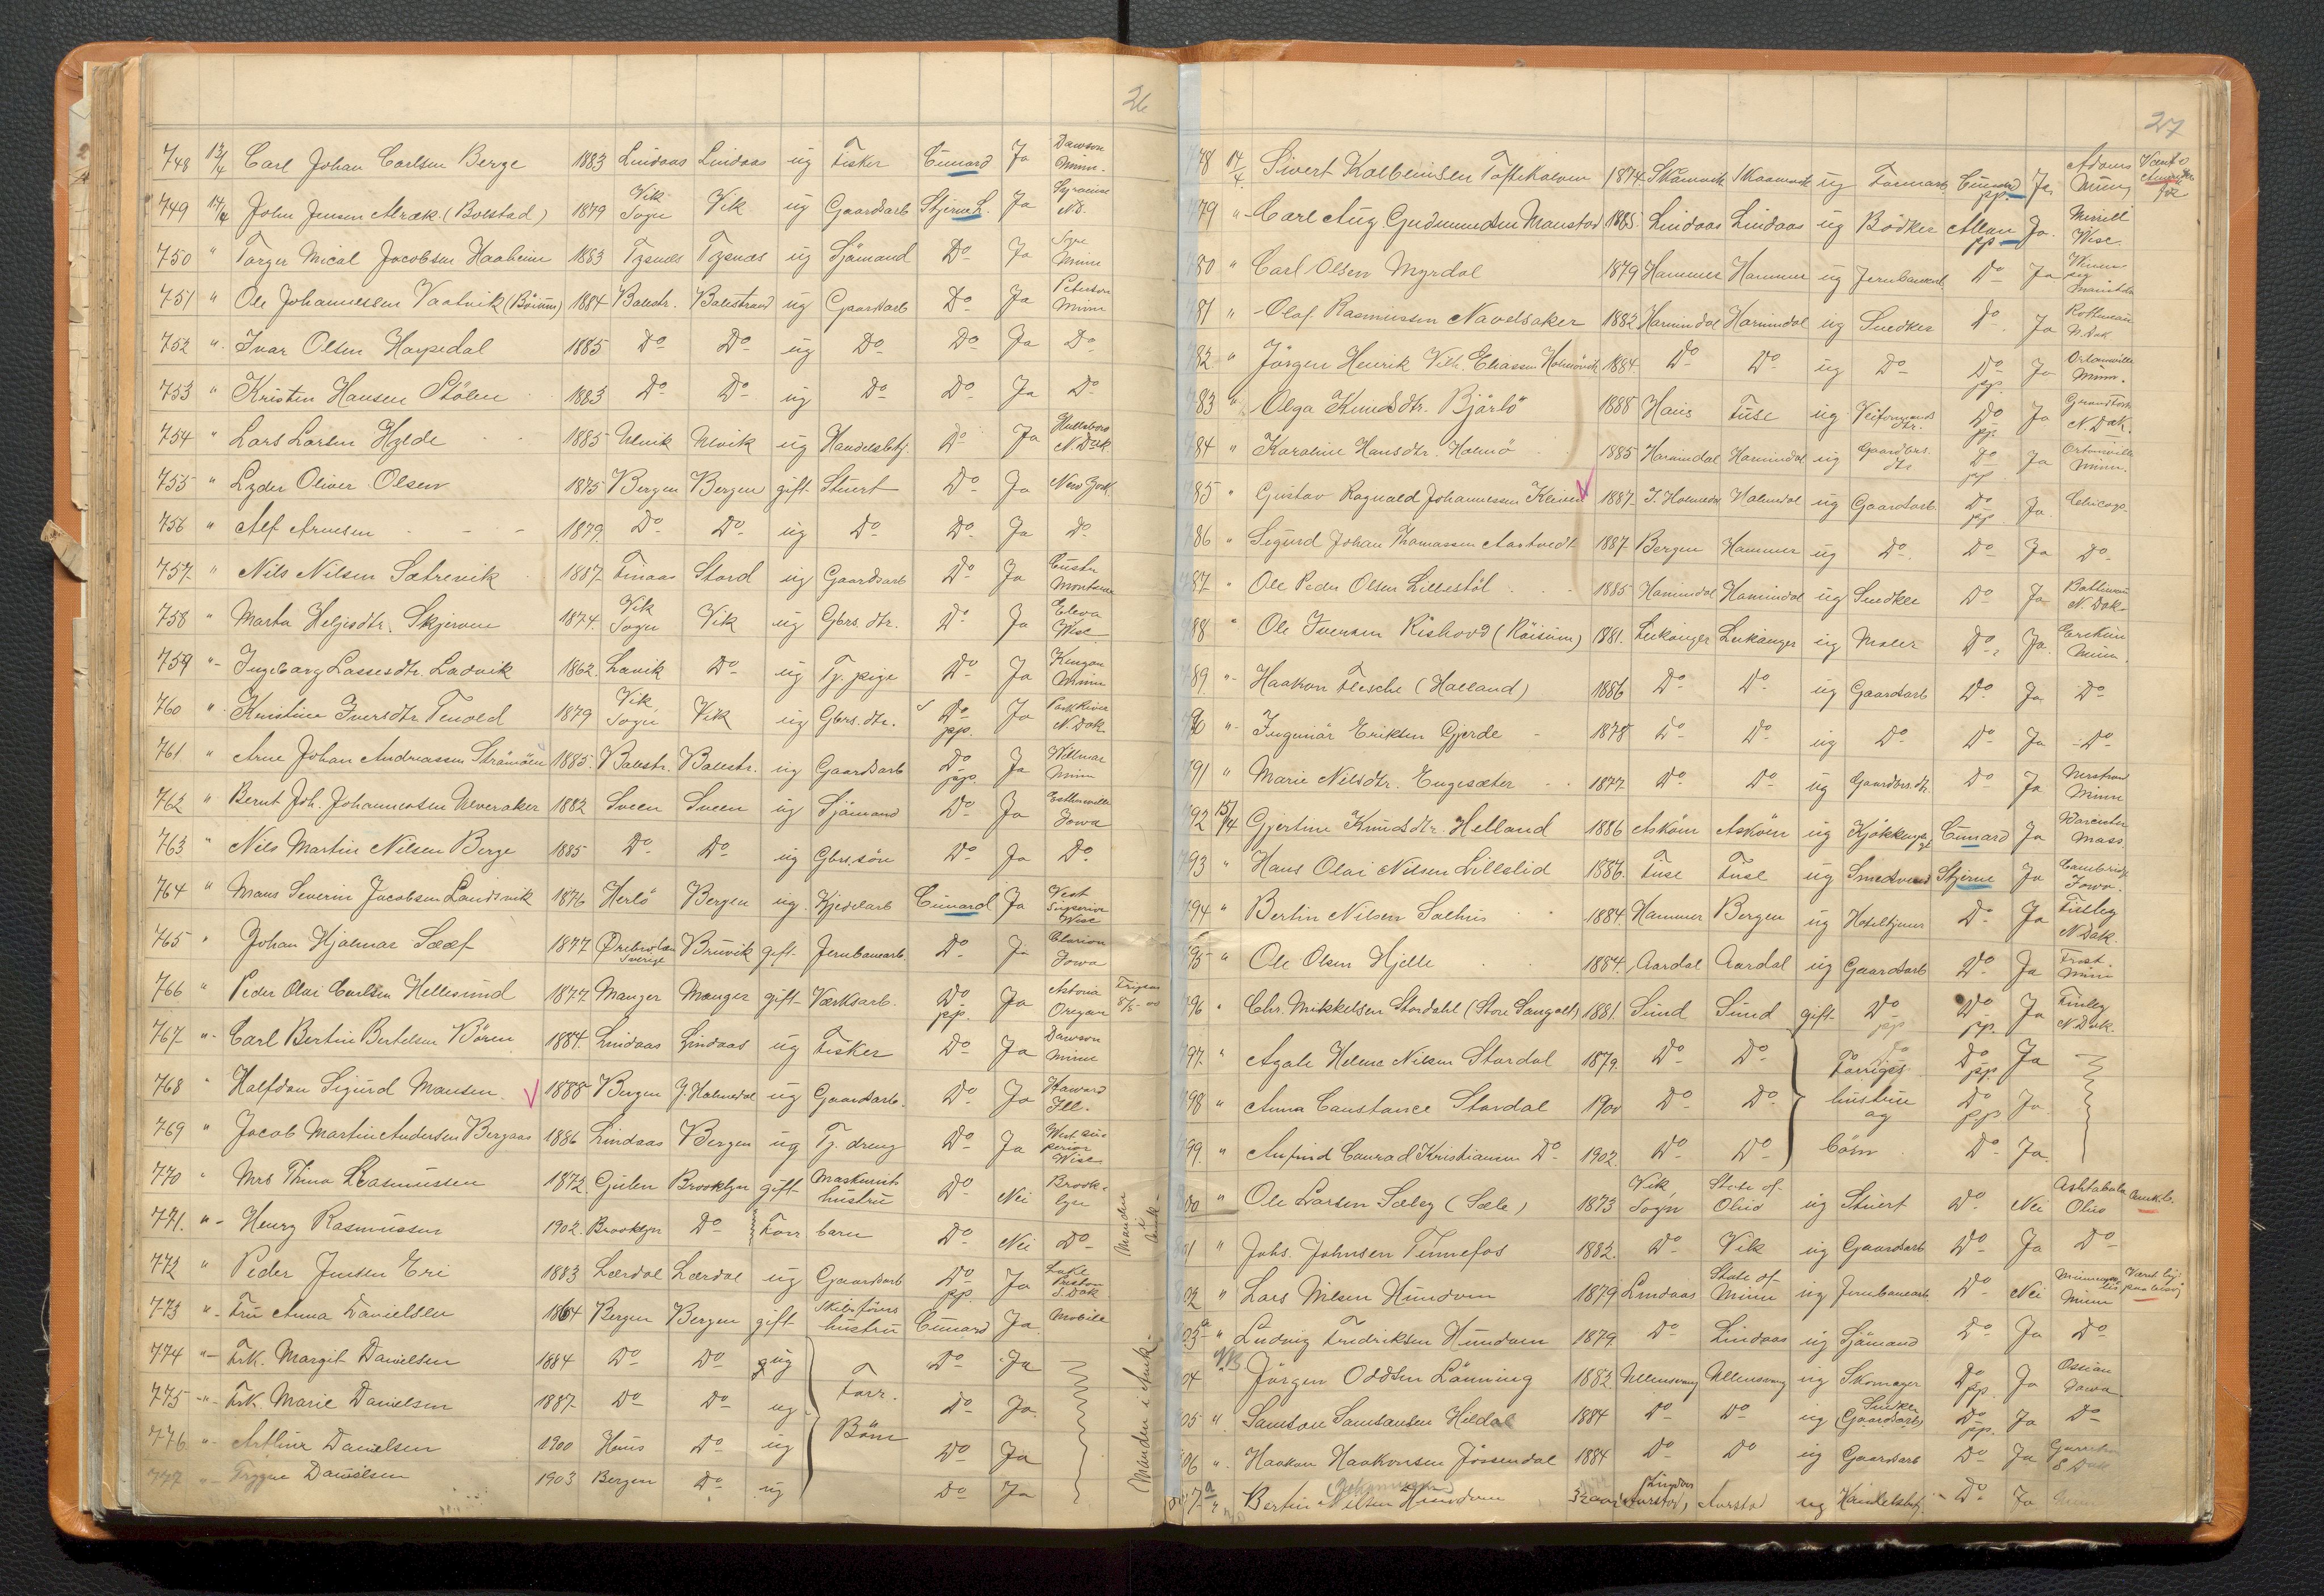 26
748 13/4 Carl Johan Carlsen Berge 1883 Lindaas Lindaas ug Fisker Cunard Ja Dawson Minn.
749 14/4 John Jensen (Bolstad) 1879 Vik Sogn Vik ug Gaardsarb Stjerne L. Ja Syracuse
750 " Torger Mical Jacobsen Haaheim 1883 Tysnæs Tysnæs ug Sjömand Do Ja Minn
751 " Ole Johannessen Vaatvik (Böium) 1884 Balestr. Balestrand ug Gaardsarb Do Ja Peterson Minn
752 " Ivar Olsen Harpedal 1885 Do Do ug Do Do Ja Do
753 " Kristen Hansen Stölen 1883 Do Do ug Do Do Ja Do
754 " Lars Larsen Hylde 1885 Ulvik Ulvik ug Handelsbtj. Do Ja Hillsboro N. Dak.
755 " Lyder Oliver Olsen 1875 Bergen Bergen gift Stuert Do Ja New York
756 " Alf Arnesen 1879 Do Do ug Do Do Ja Do
757 " Nils Nilsen Sætrevik 1887 Finaas Stord ug Gaardsarb Do Ja Custer Montana
758 " Marta Heljesdtr. Skjerven 1874 Vik Sogn Vik ug Gbrs. dtr. Do Ja Eleva Wisc
759 " Ingeborg Lassesdtr. Ladvik 1862 Lavik Do ug Tj. pige Do Ja Kenyon Minn
760 " Kristine Iversdtr Tenold 1879 Vik Sogn Vik ug Gbrs. dtr. Do pp. Ja Park River N. Dak
761 " Arne Johan Andreassen Strömöen 1885 Balestr. Balestr. ug Gaardsarb Do pp. Ja Willmar Minn
762 " Bernt Joh. Johannessen Ulveraker 1882 Sveen Sveen ug Sjömand Do Ja Estherville Iowa
763 " Nils Martin Nilsen Berge 1885 Do Do ug Gbrs. sön Do Ja Do
764 " Mons Severin Jacobsen Landsvik 1876 Herlö Bergen ug Kjedelarb Cunard Ja West Superior Wisc
765 " Johan Hjalmar Sääf 1877 Örebro Län Sverige Bruvik gift Jernbanearb. Do Ja Clarion Iowa
766 " Peder Olai Carlsen Hellesund 1877 Manger Manger gift Værksarb. Do pp. Ja Astoria Oregon
767 " Carl Bertin Bertelsen Bören 1884 Lindaas Lindaas ug Fisker Do Ja Dawson Minn
768 " Halfdan Sigurd Monsen 1888 Bergen Y. Holmedal ug Gaardsarb. Do Ja Haward Ill.
769 " Jacob Martin Andersen Bergaas 1886 Lindaas Bergen ug Tj. dreng Do Ja West Superior Wisc
770 " Mrs Thina Rasmussen 1872 Gulen Brooklyn gift Maskinist hustru Do Nei Brooklyn
771 " Henry Rasmussen 1902 Brooklyn Do Forr barn Do Nei Do
Manden i Amk.
772 " Peder Jensen Eri 1883 Lærdal Lærdal ug Gaardsarb Do pp. Ja Lake Preston S. Dak
773 " Fru Anna Danielsen 1864 Bergen Bergen gift Skibsförers hustru Cunard Ja Mobile
774 " Frk. Margit Danielsen 1884 Do Do ug Forr. Do Ja
775 " Frk. Marie Danielsen 1887 Do Do ug Börn Do Ja
776 " Arthur Danielsen 1900 Haus Do ug Do Ja
777 " Trygve Danielsen 1903 Bergen Do ug Do Ja
(Manden i Amk.
27
78 14/4 Sivert Kolbeinsen Toftekalven 1874 ug Cunard pp. Ja Adams Minn
79 " Carl Aug. Gudmundsen Monstad 1885 Lindaas Lindaas ug Bödker Allan pp Ja Merrill Wisc.
80 " Carl Olsen Myrdal 1879 Hammer Hammer ug Jernbanearb. Do Ja
81 " Olaf Rasmussen Navelsaker 1882 Hornindal Hornindal ug Snedker Do Ja Bottineau N. Dak
82 " Jörgen Henrik Vilh. Eliassen Holmövik 1884 Do Do ug Do Do pp. Ja Ortonville Minn.
83 " Olga Knudsdtr. Bjärlö 1888 Haus Fuse ug dtr. Do pp. Ja Grand Forks N. Dak.
84 " Karoline Hansdtr. Holmö 1885 Hornindal Hornindal ug Gaardbrs. dtr Do pp Ja Ortonville Minn.
85 " Gustav Ragnvald Johannessen Kleiven 1887 Y. Holmedal Holmedal ug Gaardsarb. Do pp. Ja Chicago.
86 " Sigurd Johan Thomassen Aartvedt 1887 Bergen Hammer ug Do Do Ja Do
87 " Ole Peder Olsen Lillestöl 1885 Hornindal Hornindal ug Snedker Do Ja Bottineau N. Dak.
88 " Ole Iversen Rishovd (Röisum) 1881 Leikanger Leikanger ug Maler Do Ja Erskine Minn.
89 " Haakon Flesche (Halland) 1886 Do Do ug Gaardsarb Do Ja Do
90 " Ingemar Eriksen Gjerde 1878 Do Do ug Do Do Ja Do
91 " Marie Nilsdtr. Engesæter 1877 Do Do ug Gaardbrs. dtr. Do Ja Nerstrand Minn
92 15/4 Gjertine Knudsdtr. Helland 1886 Asköen Asköen ug Cunard Ja Worcester Mass
93 " Hans Olai Nilsen Lilleslid 1886 Fuse Fuse ug Smedsvend Stjerne Ja Cambridge Iowa.
94 " Bertin Nilsen Salhus 1884 Hammer Bergen ug Do Ja Finley N Dak.
95 " Ole Olsen Hjelle 1884 Aardal Aardal ug Gaardsarb Do Ja Frost Minn
96 " Chr. Mikkelsen Stordahl (Store Sangolt) 1881 Sund Sund gift Do pp Do pp. Ja Finley N Dak.
97 " Agate Helene Nilsen Stordal 1879 Do Do Forriges Do pp. Ja
98 " Anna Constance Stordal 1900 Do Do hustru og Do pp Ja
99 " Anfind Conrad Kristiansen Do 1902 Do Do börn Do Ja
800 " Ole Larsen Sæley (Sæle) 1873 Vik, Sogn State of Ohio ug Stuert Do Nei Ashtabula Ohio
801 " Johs. Johnsen Finnefos 1882 Do Vik ug Gaardsarb Do Ja Do
02 " Lars Nilsen Hundven 1879 Lindaas State of Minn ug Jernbanearb Do Nei Minneapolis Minn
03 a " Ludvig Fredriksen Hundven 1879 Do Lindaas ug Sjömand Do Ja Do
NB
04 Jörgen Oddsen Lönning 1882 Ullensvang Ullensvang ug Skomager Do pp. Ja Ossian Iowa
05 " Samson Samsonsen Hildal 1884 Do Do ug Snedker (Gaardsarb) Do pp. Ja Do
06 " Haakon Haakonsen Jösendal 1884 Do Do ug Gaardsarb Do Ja S Dak
07 a Bertin Nilsen Hundven ug Handelsbetj. Do Ja